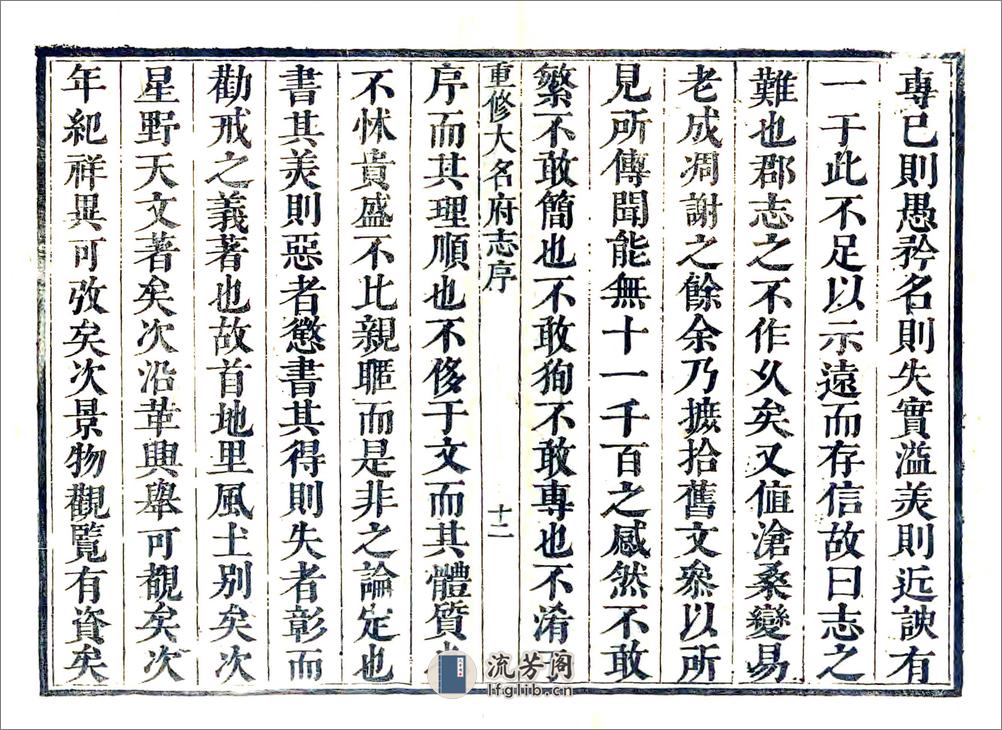 專已則愚矜名則失實溢美則近諛有
一于此不足以示遠而存信故曰志之
難也郡志之不作乆矣又值滄桑變易
老成凋謝之餘余乃摭拾舊文叅以所
見所傳聞能無十一千百之感然不敢
繁不敢簡也不敢狥不敢專也不淆
重修大名府志序
十二
序而其理順也不侈于文而其體質
不怵貴盛不比親暱而是非之論定也
書其美則惡者懲書其得則失者彰而
勸戒之義著也故首地里風土别矣次
星野天文著矣次沿革興舉可覩矣次
年紀祥異可攷矣次景物觀覧有資矣
流芳阁
lfglib.cn